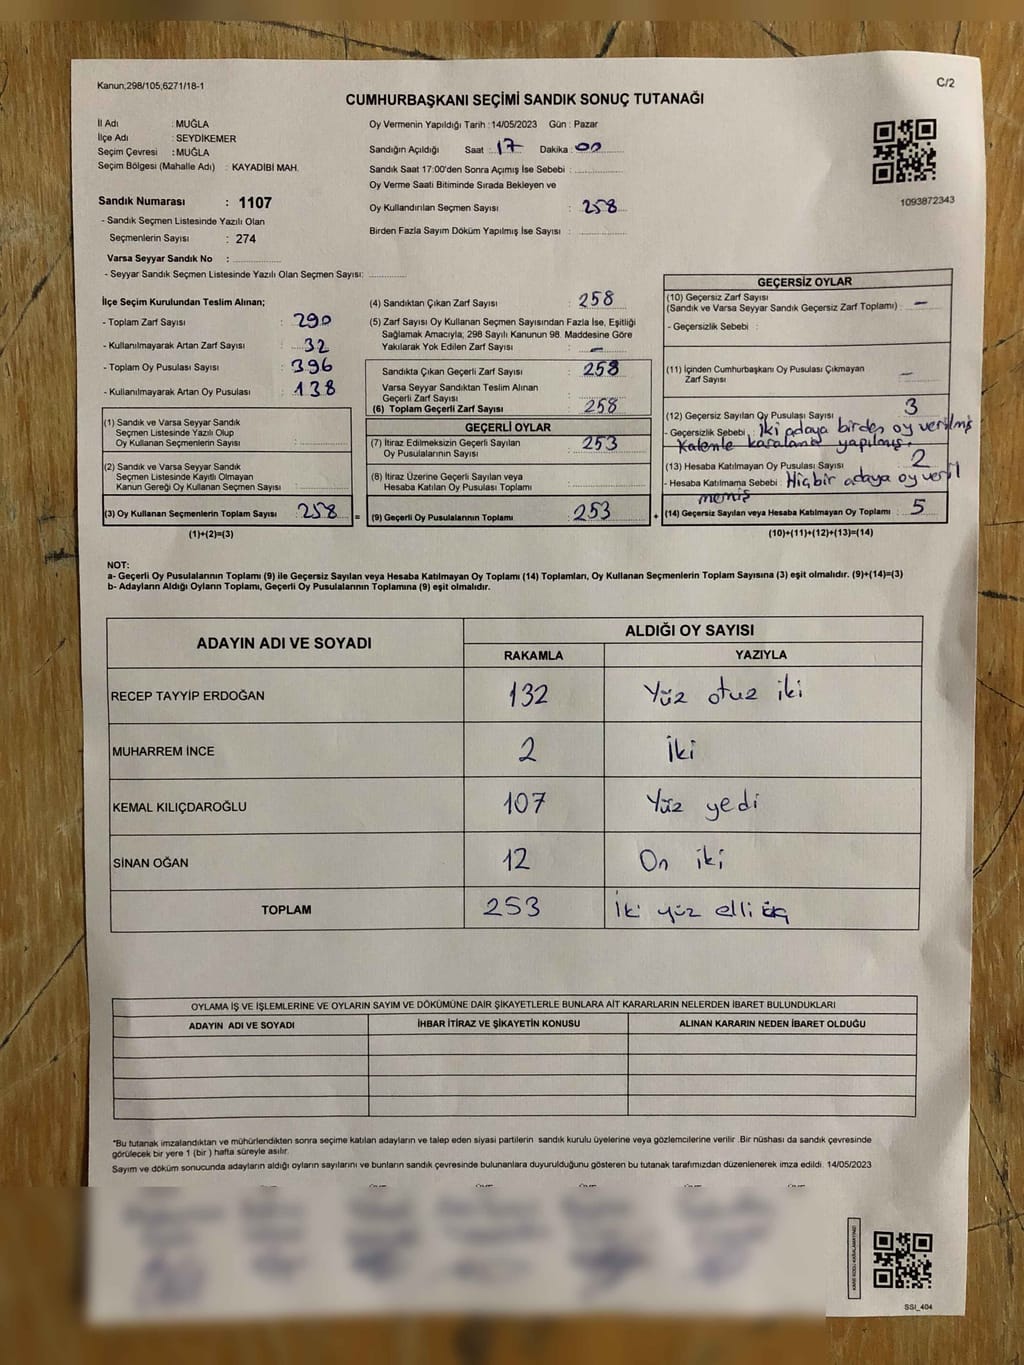 Kanun,298/105,6271/18-1
C/2
CUMHURBAŞKANI SEÇİMİ SANDIK SONUÇ TUTANAĞI
İl Adı : MUĞLA
İlçe Adı : SEYDİKEMER
Seçim Çevresi : MUĞLA
Seçim Bölgesi (Mahalle Adı) : KAYADİBİ MAH.
Sandık Numarası : 1107
- Sandık Seçmen Listesinde Yazılı Olan
Seçmenlerin Sayısı : 274
Varsa Seyyar Sandık No :
- Seyyar Sandık Seçmen Listesinde Yazılı Olan Seçmen Sayısı:
Oy Vermenin Yapıldığı Tarih : 14/05/2023 Gün : Pazar
Sandığın Açıldığı Saat : 17 Dakika : 00
Sandık Saat 17:00'den Sonra Açımış İse Sebebi :
Oy Verme Saati Bitiminde Sırada Bekleyen ve
Oy Kullandırılan Seçmen Sayısı : 258
Birden Fazla Sayım Döküm Yapılmış İse Sayısı :
1093872343
İlçe Seçim Kurulundan Teslim Alınan;
- Toplam Zarf Sayısı : 290
- Kullanılmayarak Artan Zarf Sayısı : 32
- Toplam Oy Pusulası Sayısı : 396
- Kullanılmayarak Artan Oy Pusulası : 138
(1) Sandık ve Varsa Seyyar Sandık
Seçmen Listesinde Yazılı Olup
Oy Kullanan Seçmenlerin Sayısı :
(2) Sandık ve Varsa Seyyar Sandık
Seçmen Listesinde Kayıtlı Olmayan
Kanun Gereği Oy Kullanan Seçmen Sayısı :
(3) Oy Kullanan Seçmenlerin Toplam Sayısı : 258 =
(1)+(2)=(3)
(4) Sandıktan Çıkan Zarf Sayısı : 258
(5) Zarf Sayısı Oy Kullanan Seçmen Sayısından Fazla İse, Eşitliği
Sağlamak Amacıyla; 298 Sayılı Kanunun 98. Maddesine Göre
Yakılarak Yok Edilen Zarf Sayısı : –
Sandıkta Çıkan Geçerli Zarf Sayısı : 258
Varsa Seyyar Sandıktan Teslim Alınan
Geçerli Zarf Sayısı :
(6) Toplam Geçerli Zarf Sayısı : 258
GEÇERLİ OYLAR
(7) İtiraz Edilmeksizin Geçerli Sayılan
Oy Pusulalarının Sayısı : 253
(8) İtiraz Üzerine Geçerli Sayılan veya
Hesaba Katılan Oy Pusulası Toplamı :
(9) Geçerli Oy Pusulalarının Toplamı : 253 +
GEÇERSİZ OYLAR
(10) Geçersiz Zarf Sayısı
(Sandık ve Varsa Seyyar Sandık Geçersiz Zarf Toplamı) : –
- Geçersizlik Sebebi :
(11) İçinden Cumhurbaşkanı Oy Pusulası Çıkmayan
Zarf Sayısı : –
(12) Geçersiz Sayılan Oy Pusulası Sayısı : 3
- Geçersizlik Sebebi : İki adaya birden oy verilmiş
Kalemle karalama yapılmış.
(13) Hesaba Katılmayan Oy Pusulası Sayısı : 2
- Hesaba Katılmama Sebebi : Hiçbir adaya oy veril
memiş
(14) Geçersiz Sayılan veya Hesaba Katılmayan Oy Toplamı : 5
(10)+(11)+(12)+(13)=(14)
NOT:
a- Geçerli Oy Pusulalarının Toplamı (9) ile Geçersiz Sayılan veya Hesaba Katılmayan Oy Toplamı (14) Toplamları, Oy Kullanan Seçmenlerin Toplam Sayısına (3) eşit olmalıdır. (9)+(14)=(3)
b- Adayların Aldığı Oyların Toplamı, Geçerli Oy Pusulalarının Toplamına (9) eşit olmalıdır.
ADAYIN ADI VE SOYADI
ALDIĞI OY SAYISI
RAKAMLA YAZIYLA
RECEP TAYYİP ERDOĞAN 132 Yüz otuz iki
MUHARREM İNCE 2 İki
KEMAL KILIÇDAROĞLU 107 Yüz yedi
SİNAN OĞAN 12 On iki
TOPLAM 253 İki yüz elli üç
OYLAMA İŞ VE İŞLEMLERİNE VE OYLARIN SAYIM VE DÖKÜMÜNE DAİR ŞİKAYETLERLE BUNLARA AİT KARARLARIN NELERDEN İBARET BULUNDUKLARI
ADAYIN ADI VE SOYADI İHBAR İTİRAZ VE ŞİKAYETİN KONUSU ALINAN KARARIN NEDEN İBARET OLDUĞU
*Bu tutanak imzalandıktan ve mühürlendikten sonra seçime katılan adayların ve talep eden siyasi partilerin sandık kurulu üyelerine veya gözlemcilerine verilir .Bir nüshası da sandık çevresinde
görülecek bir yere 1 (bir ) hafta süreyle asılır.
Sayım ve döküm sonucunda adayların aldığı oyların sayılarını ve bunların sandık çevresinde bulunanlara duyurulduğunu gösteren bu tutanak tarafımızdan düzenlenerek imza edildi. 14/05/2023
SSI_404